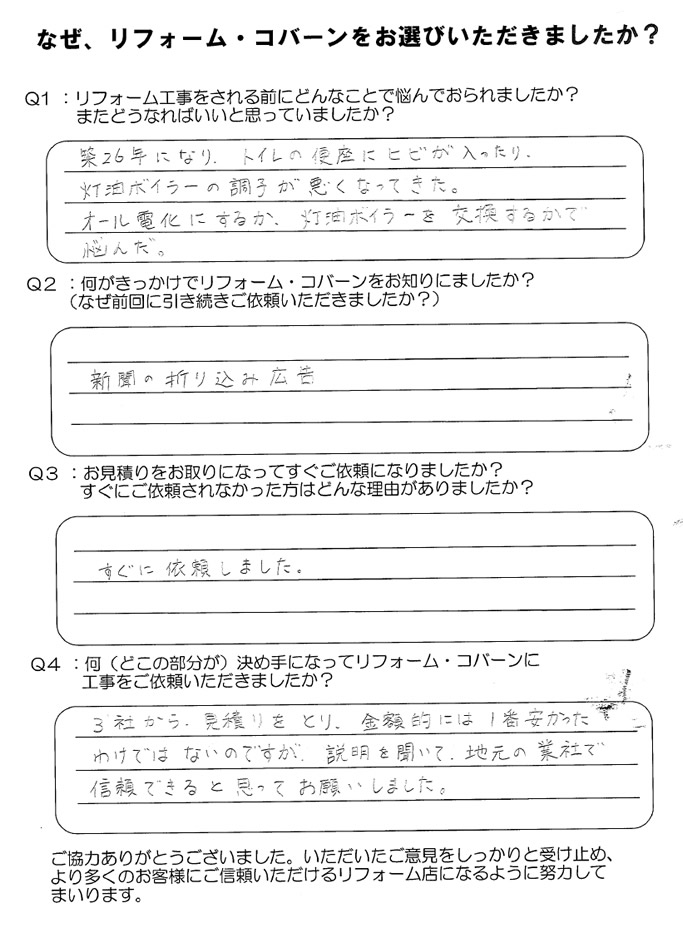 なぜ、リフォーム・コバーンをお選びいただきましたか？
Q1 ：リフォーム工事をされる前にどんなことで悩んでおられましたか？
またどうなればいいと思っていましたか？
築26年になり、トイレの便座にヒビが入ったり、
灯油ボイラーの調子が悪くなってきた。
オール電化にするか、灯油ボイラーを交換するかで
悩んだ。
Q2 ：何がきっかけでリフォーム・コバーンをお知りにましたか？
（なぜ前回に引き続きご依頼いただきましたか？）
新聞の折り込み広告
Q3 ：お見積りをお取りになってすぐご依頼になりましたか？
すぐにご依頼されなかった方はどんな理由がありましたか？
すぐに依頼しました。
Q4 ：何（どこの部分が）決め手になってリフォーム・コバーンに
工事をご依頼いただきましたか？
3社から、見積りをとり、金額的には1番安かった
わけではないのですが、説明を聞いて、地元の業社で
信頼できると思ってお願いしました。
ご協力ありがとうございました。いただいたご意見をしっかりと受け止め、
より多くのお客様にご信頼いただけるリフォーム店になるように努力して
まいります。